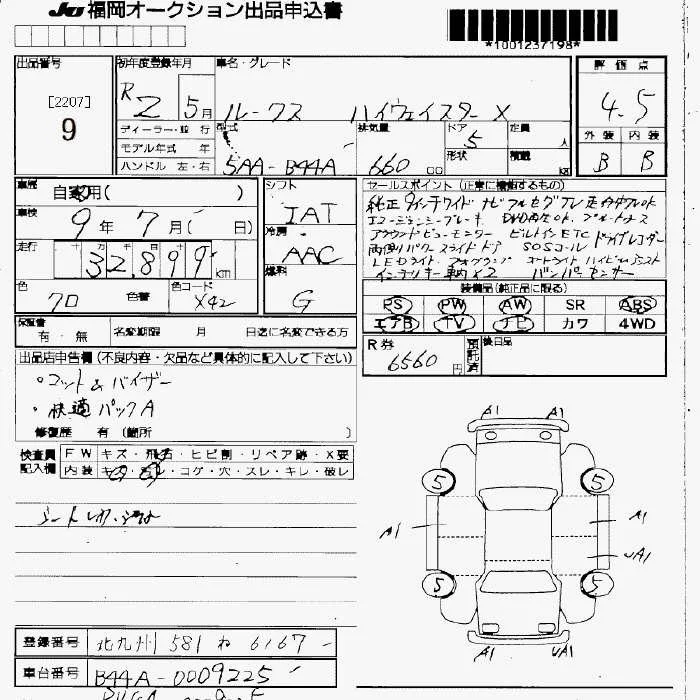 JU 福岡オークション出品申込書
*1001237198*
出品番号
[2207]
9
初年度登録年月
R2 5月
ディーラー・並行
モデル年式 年
ハンドル 左・右
車名・グレード
ルークス ハイウェイスター X
型式
5AA-B44A
排気量
660 cc
ドア
5
形状
定員
人
積載
kg
評価点
4.5
外装 内装
B B
車歴
自家用( )
車検
9年 7月( 日)
走行
32,899 km
色
クロ 色替
色コード
X42
シフト
IAT
冷房
AAC
燃料
G
セールスポイント (正常に機能するもの)
純正9インチワイドナビ フルセグTV
エマージェンシーブレーキ DVD再生
アラウンドビューモニター ビルトインETC ドライブレコーダー
両側パワースライドドア SOSコール
LEDライト フォグランプ オートライト
インテリキー 車内×2 バンパーセンサー
装備品 (純正品に限る)
PS PW AW SR ABS
エアB TV ナビ カワ 4WD
保証書
有・無
名変期限 月 日迄に名変できる方
R券
6560円
預託済
後日品
出品店申告欄 (不良内容・欠品など具体的に記入して下さい)
・マット&バイザー
・快適パックA
修復歴 有 (箇所 )
検査員記入欄
FW キズ・飛石・ヒビ割・リペア跡・X要
内装 キズ・汚れ・コゲ・穴・スレ・キレ・破レ
A1 A1
5 5
A1 A1
UA1
5 5
A1 UA1
登録番号 北九州 581 わ 6167
車台番号 B44A-0009225